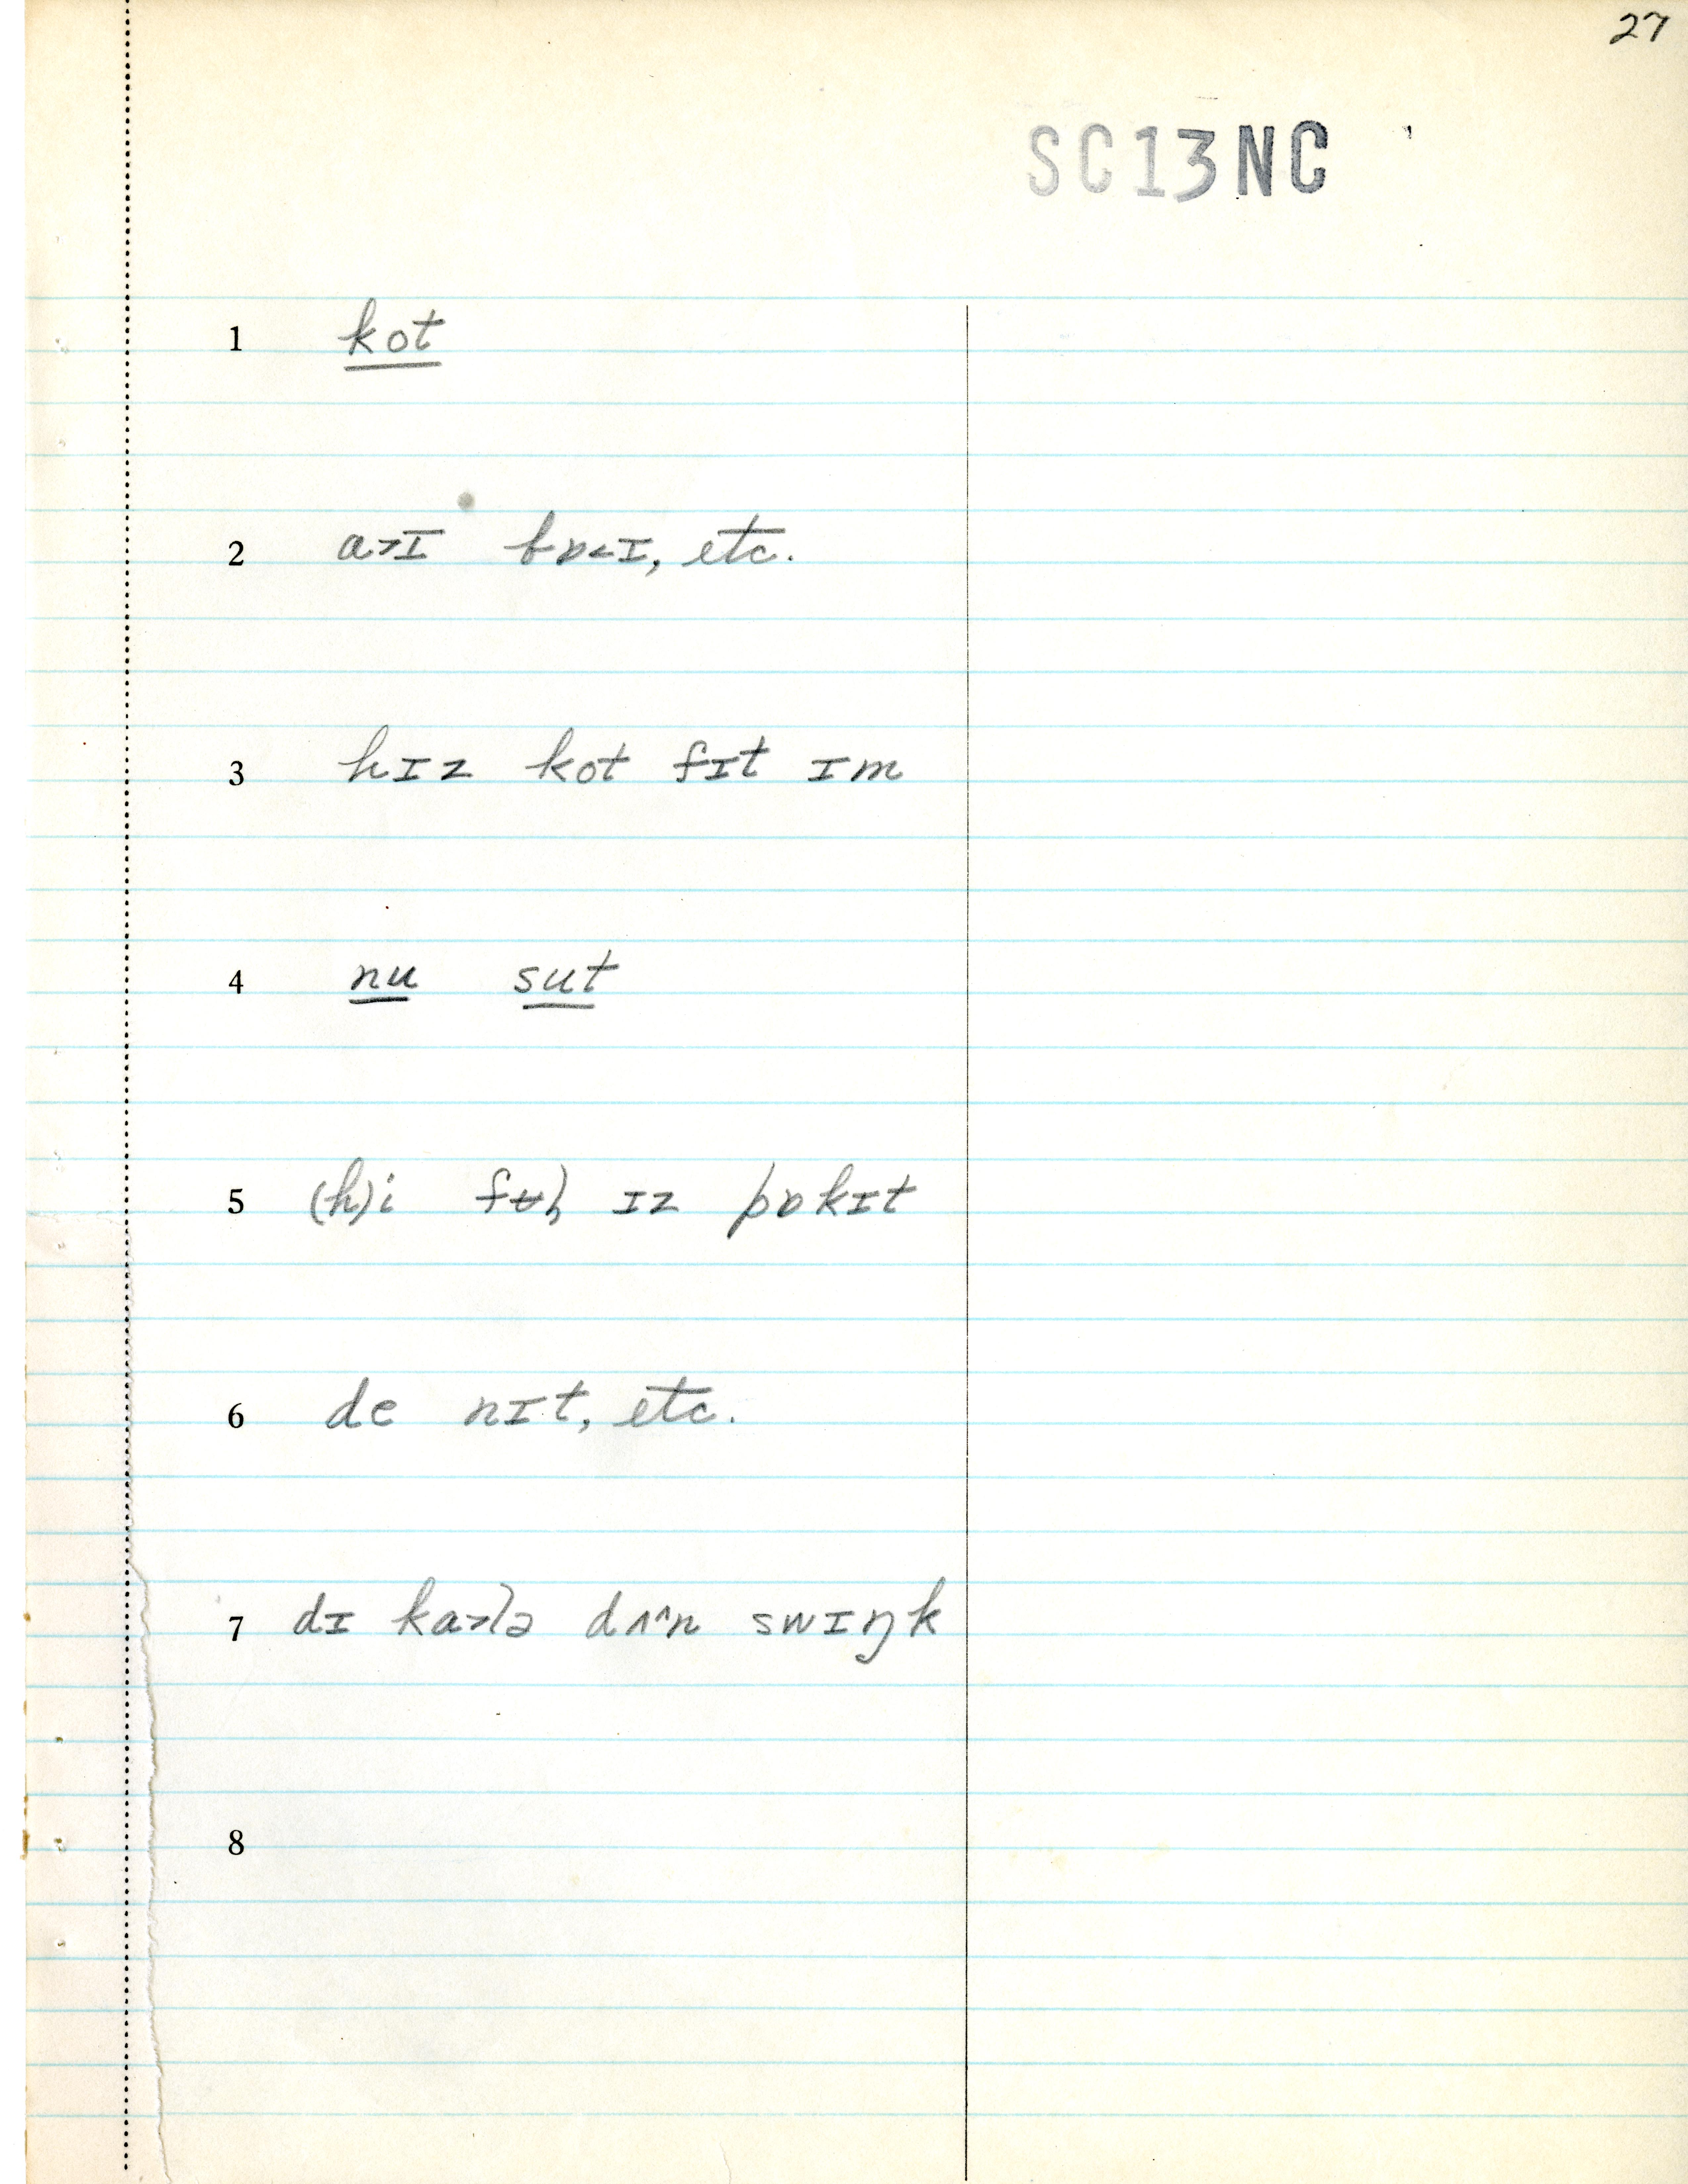 27
SC13NC
1 k͟o͟t͟
2 a˃ɪ bɒ˂ɪ, etc.
3 hɪz kot fɪt ɪm
4 n͟u͟ s͟u͟t͟
5 (h)i ɪz pɒkɪt
6 de nɪt, etc.
7 dɪ dʌ^n swɪŋk
8